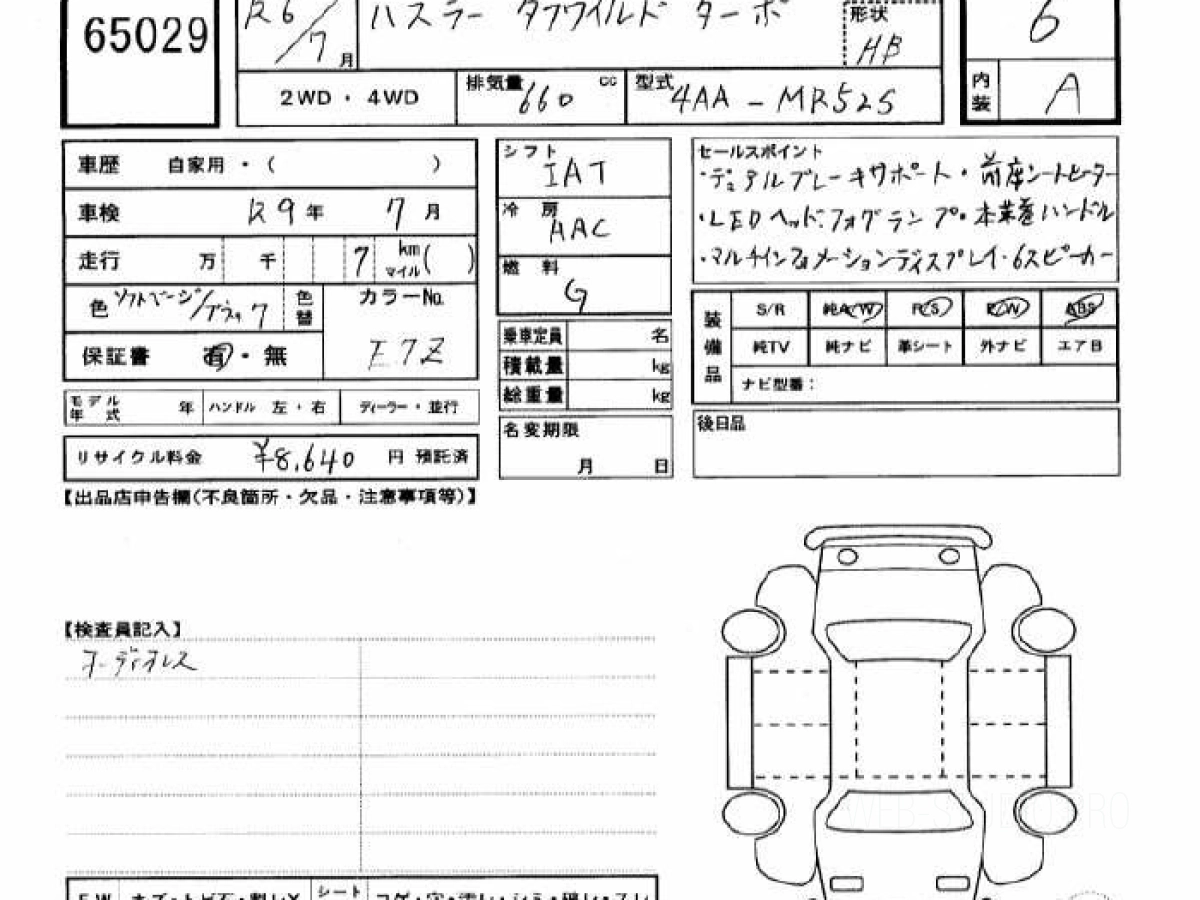 65029
R6/7月
ハスラー タフワイルド ターボ
形状 HB
6
2WD・4WD
排気量 660 cc
型式 4AA-MR52S
内装 A
車歴 自家用・( )
車検 R9年 7月
走行 万 千 7 km マイル( )
色 ソフトベージ/ブラック
色替
カラーNo. E7Z
保証書 有・無
モデル年式 年 ハンドル 左・右 ディーラー・並行
リサイクル料金 ¥8,640 円 預託済
シフト IAT
冷房 AAC
燃料 G
乗車定員 名
積載量 kg
総重量 kg
名変期限 月 日
セールスポイント
・デュアルブレーキサポート・前席シートヒーター
・LEDヘッド、フォグランプ・本革巻ハンドル
・マルチインフォメーションディスプレイ・6スピーカー
装備品
S/R 純AW P/S P/W ABS
純TV 純ナビ 革シート 外ナビ エアB
ナビ型番：
後日品
【出品店申告欄(不良箇所・欠品・注意事項等)】
【検査員記入】
オーディオレス
WEB-S
RO
シート